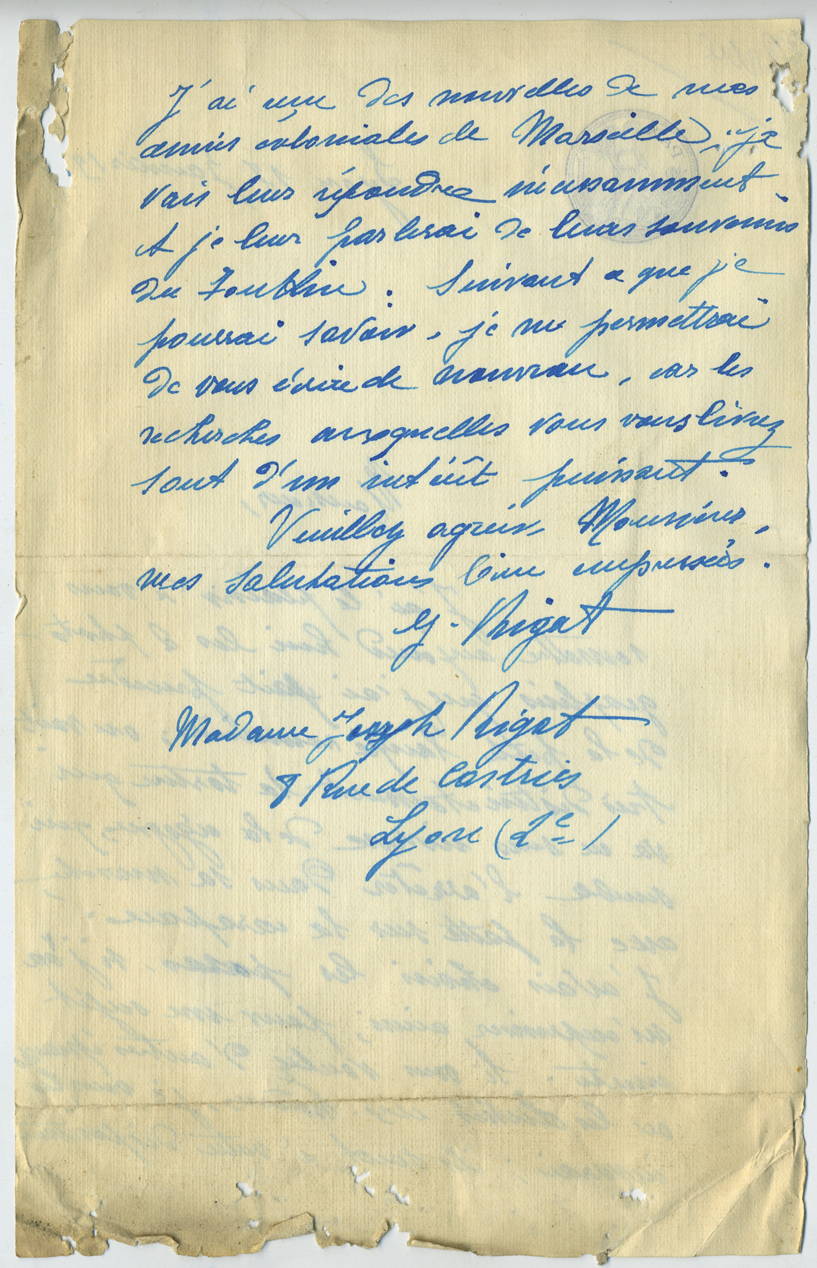 J'ai eu des nouvelles de mes
amies coloniales de Marseille, je
vais leur répondre incessamment
et je leur parlerai de leurs souvenirs
du
Suivant ce que je
pourrai savoir, je me permettrai
de vous écrire de nouveau, car les
recherches auxquelles vous vous livrez
sont d'un intérêt puissant.
Veuillez agréer, Monsieur,
mes salutations bien empressées.
Rigat
Madame Joseph Rigat
8 Rue de Castries
Lyon (2e)